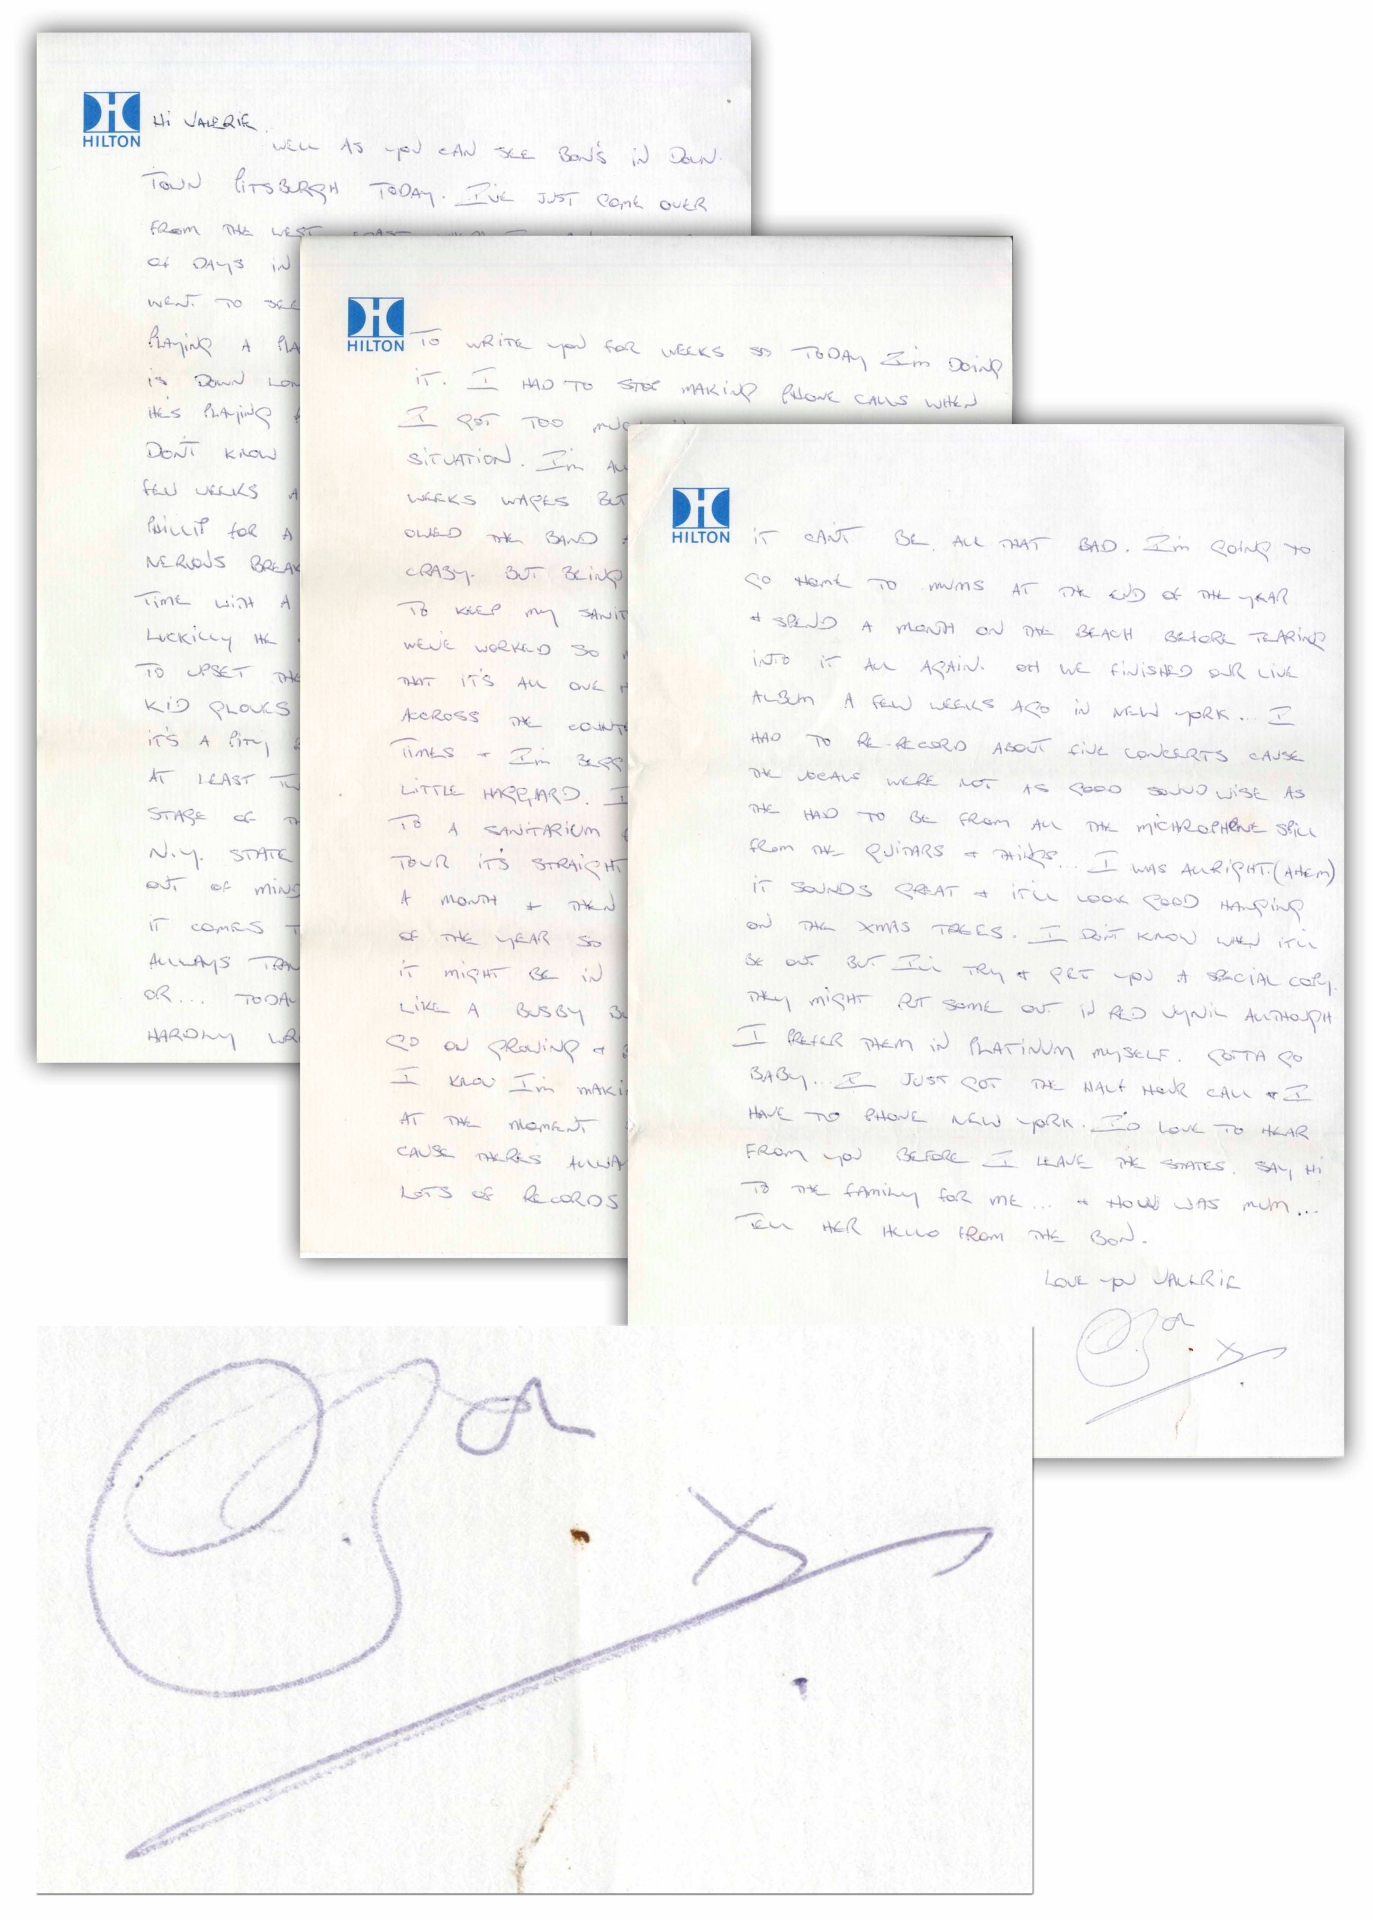 HILTON
Hi VALERIE.
WELL AS YOU CAN SEE BON'S IN DOWN
TOWN PITSBURGH TODAY. I'VE JUST COME OVER
FROM THE WEST
OF DAYS IN
WENT TO SEE
PLAYING A
IS DOWN
HE'S PLAYING
DON'T KNOW
FEW WEEKS
PHILLIP FOR A
NERVOUS
TIME WITH A
LUCKILLY HE
TO UPSET THE
KID GLOVES
IT'S A PITY
AT LEAST
STAGE OF
N.Y. STATE
OUT OF MIND
IT COMES
ALLWAYS
OR... TODAY
HARDLY
HILTON
TO WRITE YOU FOR WEEKS SO TODAY I'M DOING
IT. I HAD TO STOP MAKING PHONE CALLS WHEN
I GOT TOO
SITUATION. I'M
WEEKS WAGES BUT
OWED THE BAND
CRAZY. BUT BEING
TO KEEP MY
WE'VE WORKED SO
THAT IT'S ALL ONE
ACCROSS THE
TIMES + I'M
LITTLE HAGGARD.
TO A SANITARIUM
TOUR IT'S STRAIGHT
A MONTH + THEN
OF THE YEAR SO
IT MIGHT BE IN
LIKE A BUSBY
GO ON GROWING +
I KNOW I'M
AT THE MOMENT
CAUSE THERES
LOTS OF RECORDS
HILTON
IT CAN'T BE ALL THAT BAD. I'M GOING TO
GO HOME TO MUMS AT THE END OF THE YEAR
+ SPEND A MONTH ON THE BEACH BEFORE TEARING
INTO IT ALL AGAIN. OH WE FINISHED OUR LIVE
ALBUM A FEW WEEKS AGO IN NEW YORK... I
HAD TO RE-RECORD ABOUT FIVE CONCERTS CAUSE
THE VOCALS WERE NOT AS GOOD SOUND WISE AS
THE HAD TO BE FROM ALL THE MICHROPHONE SPILL
FROM THE GUITARS + THINGS... I WAS ALLRIGHT. (AHEM)
IT SOUNDS GREAT + IT'LL LOOK GOOD HANGING
ON THE XMAS TREES. I DON'T KNOW WHEN IT'LL
BE OUT BUT I'LL TRY + GET YOU A SPECIAL COPY.
THEY MIGHT PUT SOME OUT IN RED VYNIL ALLTHOUGH
I PREFER THEM IN PLATINUM MYSELF. GOTTA GO
BABY... I JUST GOT THE HALF HOUR CALL + I
HAVE TO PHONE NEW YORK. I'D LOVE TO HEAR
FROM YOU BEFORE I LEAVE THE STATES. SAY HI
TO THE FAMILY FOR ME... + HOW WAS MUM...
TELL HER HELLO FROM THE BON.
LOVE YOU VALERIE
Bon
X
Bon
X